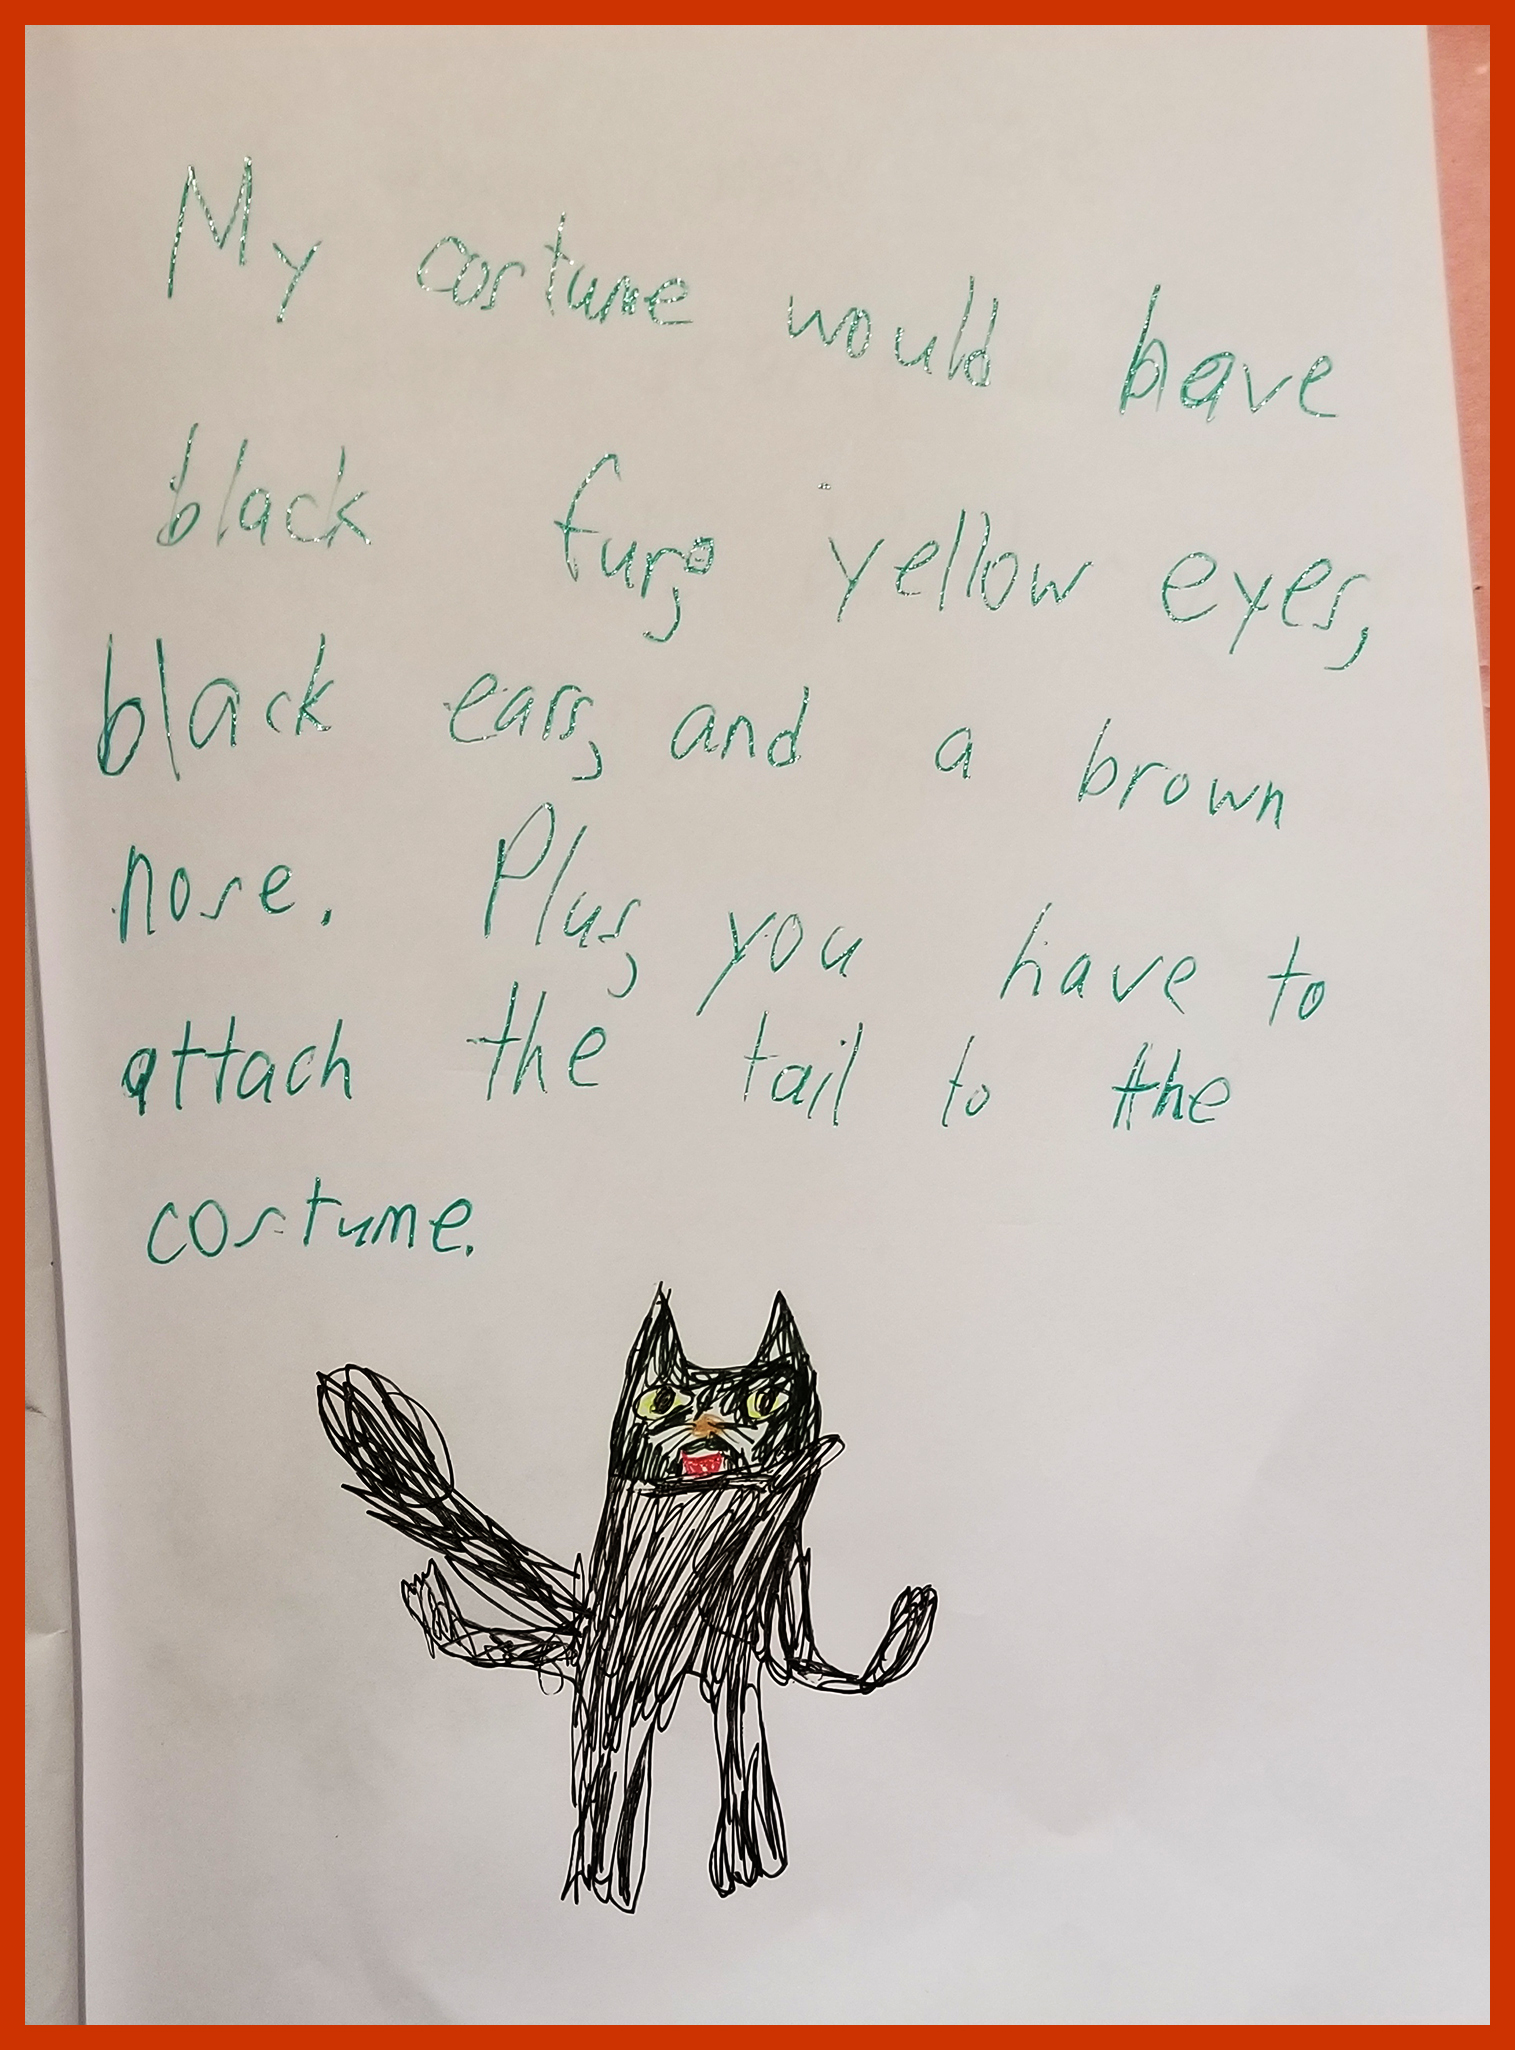 My costume would have
black fur, yellow eyes,
black ears, and a brown
nose. Plus, you have to
attach the tail to the
costume.